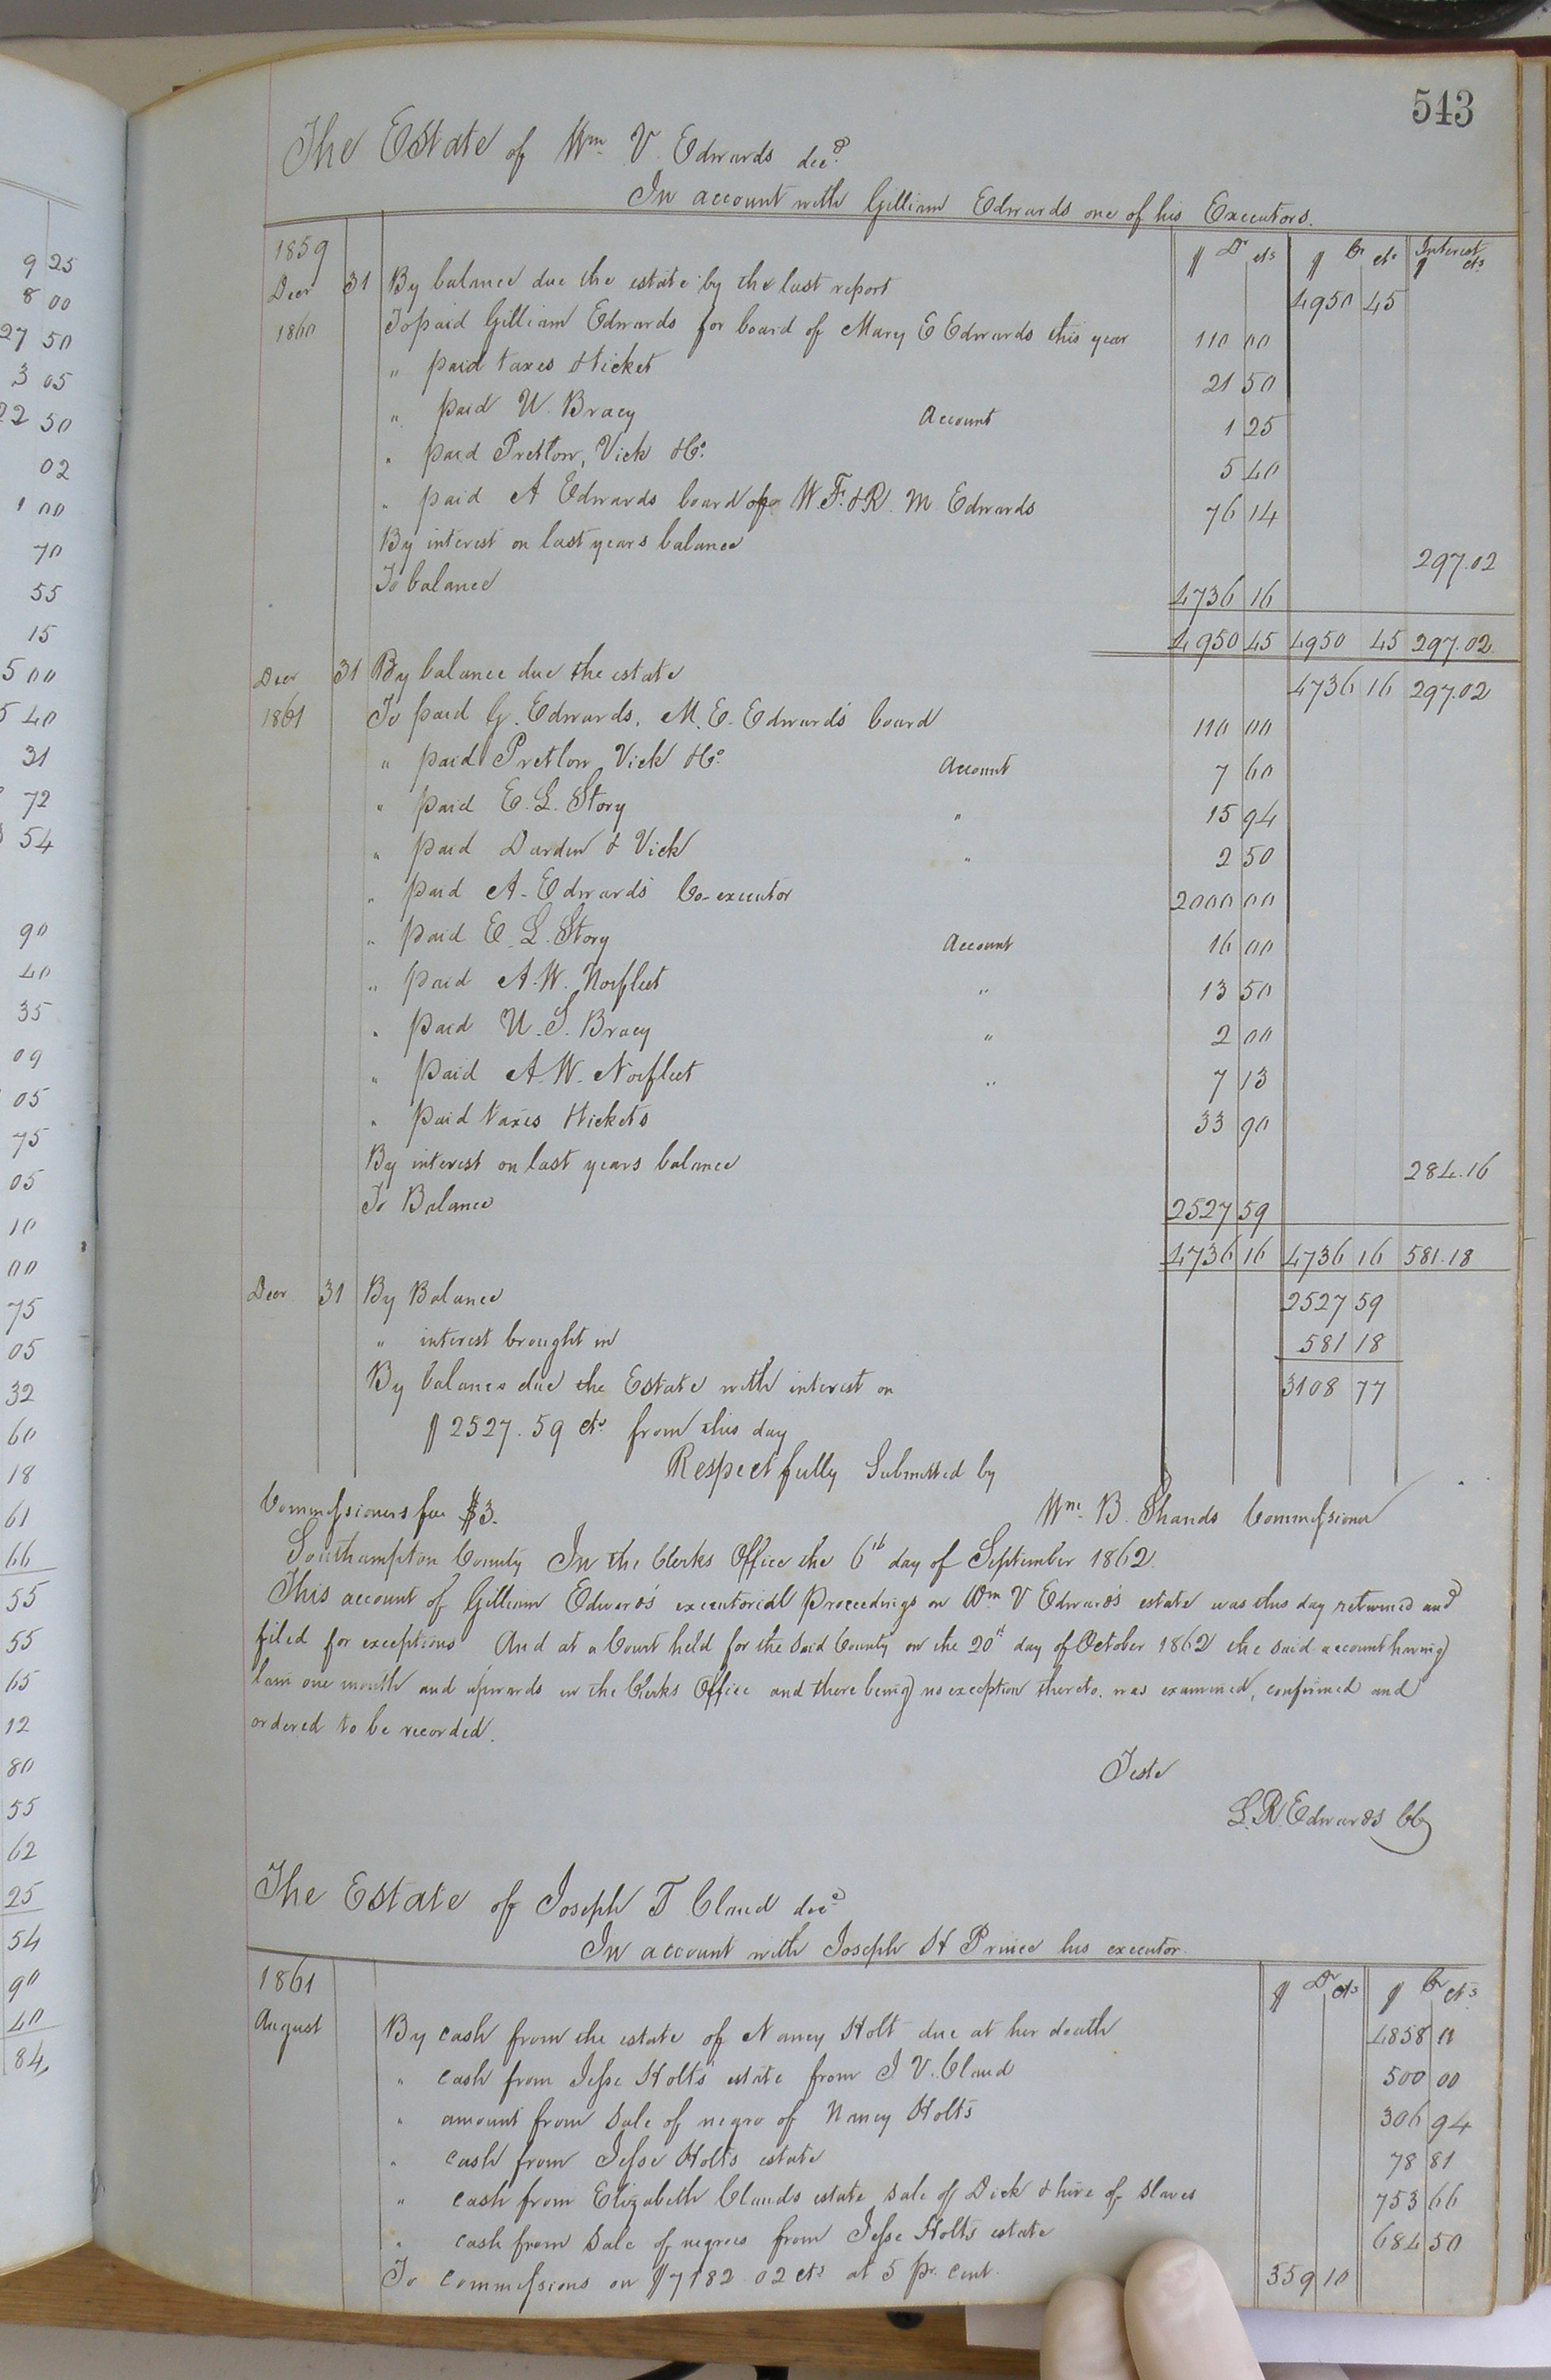 543
The Estate of Wm V. Edwards decd
In account with Gilliam Edwards one of his Executors.
1859 $ Dr cts $ Cr cts Interest $ cts
Decr 31 By balance due the estate by the last report 4950 45
1860 To paid Gilliam Edwards for board of Mary E Edwards this year 110 00
" paid taxes & ticket 21 50
" paid U. Bracy Account 1 25
" paid Pretlow, Vick & Co. 5 40
" paid A Edwards board of W. F. & R. M Edwards 76 14
By interest on last years balance 297.02
To balance 4736 16
4950 45 4950 45 297.02
Decr 31 By balance due the estate 4736 16 297.02
1861 To paid G. Edwards, M. E. Edwards' board 110 00
" paid Pretlow Vick & Co. Account 7 60
" paid E. L. Story " 15 94
" paid Darden & Vick " 2 50
" paid A. Edwards Co-executor 2000 00
" paid E. L. Story Account 16 00
" paid A. W. Norfleet " 13 50
" paid U. S. Bracy " 2 00
" paid A. W. Norfleet " 7 13
" paid taxes & tickets 33 90
By interest on last years balance 284.16
To Balance 2527 59
4736 16 4736 16 581.18
Decr 31 By Balance 2527 59
" interest brought in 581 18
By balance due the Estate with interest on 3108 77
$2527.59 cts from this day
Respectfully Submitted by
Commissioners fee $3. Wm. B. Shands Commissioner
Southampton County In the Clerks Office the 6th day of September 1862.
This account of Gilliam Edward's executorial Proceedings on Wm V Edward's estate was this day returned and
filed for exceptions And at a Court held for the said County on the 20th day of October 1862 the said account having
lain one month and upwards in the Clerks Office and there being no exception thereto, was examined, confirmed and
ordered to be recorded.
Teste
L. R. Edwards CC
The Estate of Joseph T Claud decd
In account with Joseph H Prince his executor.
1861 $ Dr cts $ Cr cts
August By cash from the estate of Nancy Holt due at her death 4858 11
" cash from Jesse Holts estate from J V. Claud 500 00
" amount from sale of negro of Nancy Holts 306 94
" cash from Jesse Holts estate 78 81
" cash from Elizabeth Clauds estate sale of Dick & hire of slaves 753 66
" cash from sale of negroes from Jesse Holts estate 684 50
To commissions on $7182 02 cts at 5 pr. cent. 359 10
9 25
8 00
27 50
3 05
22 50
02
1 00
70
55
15
5 00
5 40
31
72
54
90
40
35
09
05
75
05
10
00
75
05
32
60
18
61
66
55
55
65
12
80
55
62
25
54
90
40
84